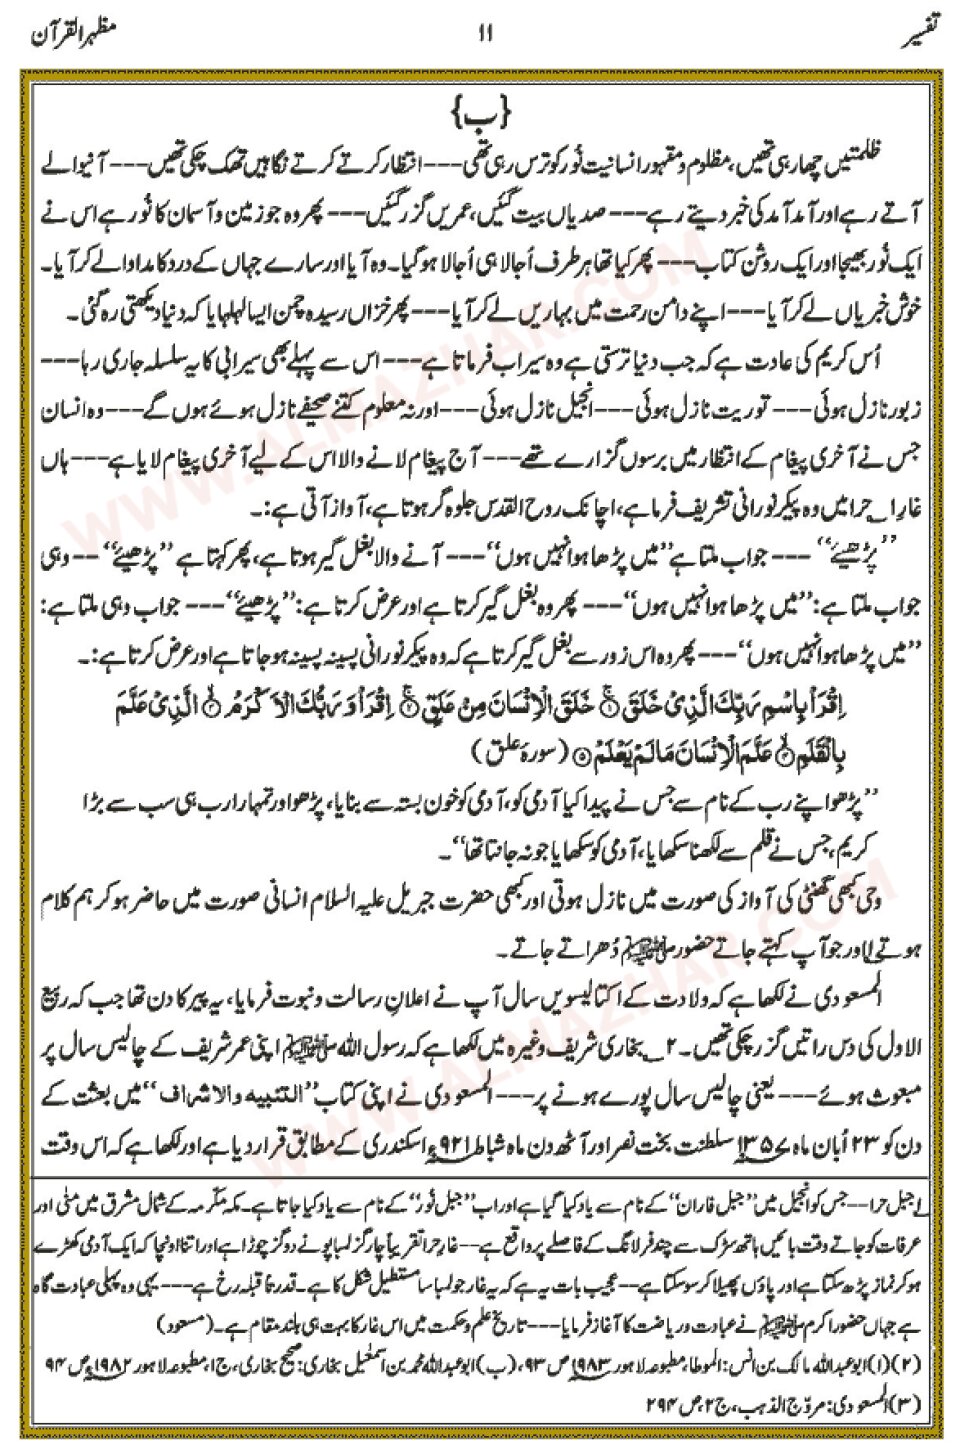 تفسیر ۱۱ مظہر القرآن
{ب}
ظلمتیں چھا رہی تھیں، مظلوم و مقہور انسانیت نُور کو ترس رہی تھی --- انتظار کرتے کرتے نگاہیں تھک چکی تھیں --- آنیوالے
آتے رہے اور آمد آمد کی خبر دیتے رہے --- صدیاں بیت گئیں، عمریں گزر گئیں --- پھر وہ جو زمین و آسمان کا نُور ہے اس نے
ایک نُور بھیجا اور ایک روشن کتاب --- پھر کیا تھا ہر طرف اُجالا ہی اُجالا ہو گیا۔ وہ آیا اور سارے جہاں کے درد کا مداوا لے کر آیا۔
خوش خبریاں لے کر آیا --- اپنے دامن رحمت میں بہاریں لے کر آیا --- پھر خزاں رسیدہ چمن ایسا لہلہایا کہ دنیا دیکھتی رہ گئی۔
اُس کریم کی عادت ہے کہ جب دنیا ترستی ہے وہ سیراب فرماتا ہے --- اس سے پہلے بھی سیرابی کا یہ سلسلہ جاری رہا ---
زبور نازل ہوئی --- توریت نازل ہوئی --- انجیل نازل ہوئی --- اور نہ معلوم کتنے صحیفے نازل ہوئے ہوں گے --- وہ انسان
جس نے آخری پیغام کے انتظار میں برسوں گزارے تھے --- آج پیغام لانے والا اس کے لیے آخری پیغام لایا ہے --- ہاں
غارِ۱ حرا میں وہ پیکر نورانی تشریف فرما ہے، اچانک روح القدس جلوہ گر ہوتا ہے، آواز آتی ہے:۔
”پڑھیئے“ --- جواب ملتا ہے ”میں پڑھا ہوا نہیں ہوں“ --- آنے والا بغل گیر ہوتا ہے، پھر کہتا ہے ”پڑھیئے“ -- وہی
جواب ملتا ہے: ”میں پڑھا ہوا نہیں ہوں“ --- پھر وہ بغل گیر کرتا ہے اور عرض کرتا ہے: ”پڑھیئے“ --- جواب وہی ملتا ہے:
”میں پڑھا ہوا نہیں ہوں“ --- پھر وہ اس زور سے بغل گیر کرتا ہے کہ وہ پیکر نورانی پسینہ پسینہ ہو جاتا ہے اور عرض کرتا ہے:۔
اِقْرَاْ بِاسْمِ رَبِّكَ الَّذِیْ خَلَقَ ۚ خَلَقَ الْاِنْسَانَ مِنْ عَلَقٍ ۚ اِقْرَاْ وَ رَبُّكَ الْاَكْرَمُ ۙ الَّذِیْ عَلَّمَ
بِالْقَلَمِ ۙ عَلَّمَ الْاِنْسَانَ مَا لَمْ یَعْلَمْ ۝ (سورۂ علق)
”پڑھو اپنے رب کے نام سے جس نے پیدا کیا آدمی کو، آدمی کو خون بستہ سے بنایا، پڑھو اور تمہارا رب ہی سب سے بڑا
کریم، جس نے قلم سے لکھنا سکھایا، آدمی کو سکھایا جو نہ جانتا تھا“۔
وحی کبھی گھنٹی کی آواز کی صورت میں نازل ہوتی اور کبھی حضرت جبریل علیہ السلام انسانی صورت میں حاضر ہو کر ہم کلام
ہوتے اور جو آپ کہتے جاتے حضور ﷺ دُھراتے جاتے۔
المسعودی نے لکھا ہے کہ ولادت کے اکتالیسویں سال آپ نے اعلانِ رسالت و نبوت فرمایا، یہ پیر کا دن تھا جب کہ ربیع
الاول کی دس راتیں گزر چکی تھیں۔ ۲ بخاری شریف وغیرہ میں لکھا ہے کہ رسول اللہ ﷺ اپنی عمر شریف کے چالیس سال پر
مبعوث ہوئے --- یعنی چالیس سال پورے ہونے پر --- المسعودی نے اپنی کتاب ”التنبیه والاشراف“ میں بعثت کے
دن کو ۲۳ اُبان ماہ ۱۳۵۷ء سلطنت بخت نصر اور آٹھ دن ماہ شباط ۹۲۱ء اسکندری کے مطابق قرار دیا ہے اور لکھا ہے کہ اس وقت
۱ جبل حرا -- جس کو انجیل میں ”جبل فاران“ کے نام سے یاد کیا گیا ہے اور اب ”جبل نُور“ کے نام سے یاد کیا جاتا ہے۔ مکہ مکرمہ کے شمال مشرق میں منیٰ اور
عرفات کو جاتے وقت بائیں ہاتھ سڑک سے چند فرلانگ کے فاصلے پر واقع ہے -- غارِ حرا تقریباً چار گز لمبا پونے دو گز چوڑا ہے اور اتنا اونچا کہ ایک آدمی کھڑے
ہو کر نماز پڑھ سکتا ہے اور پاؤں پھیلا کر سو سکتا ہے -- عجیب بات یہ ہے کہ یہ غار جو لمبا سا مستطیل شکل کا ہے۔ قدرتاً قبلہ رخ ہے --- یہی وہ پہلی عبادت گاہ
ہے جہاں حضور اکرم ﷺ نے عبادت و ریاضت کا آغاز فرمایا --- تاریخ علم و حکمت میں اس غار کا بہت ہی بلند مقام ہے۔ (مسعود)
(۲) (ا) ابو عبداللہ مالک بن انس: الموطا، مطبوعہ لاہور ۱۹۸۳ء ص ۹۳، (ب) ابو عبداللہ محمد بن اسمٰعیل بخاری: صحیح بخاری، ج۱، مطبوعہ لاہور ۱۹۸۲ء ص ۹۴
(۳) المسعودی: مروّج الذہب، ج ۲، ص ۲۹۴
WWW.ALMAZHAR.COM
WWW.ALMAZHAR.COM